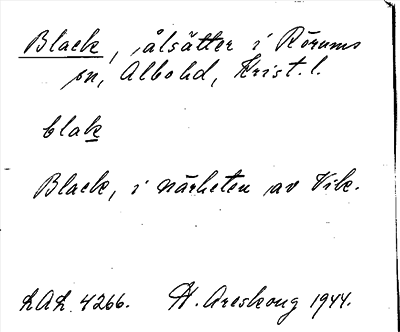 Black, ålsätter i Rörums
sn, Albo hd, Krist. l.
blak
Black, i närheten av Vik.
LAL 4266. H. Areskoug 1944.